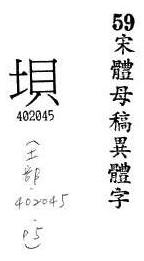 59宋體母稿異體字
塤
402045
(土部.
402045
.P5)